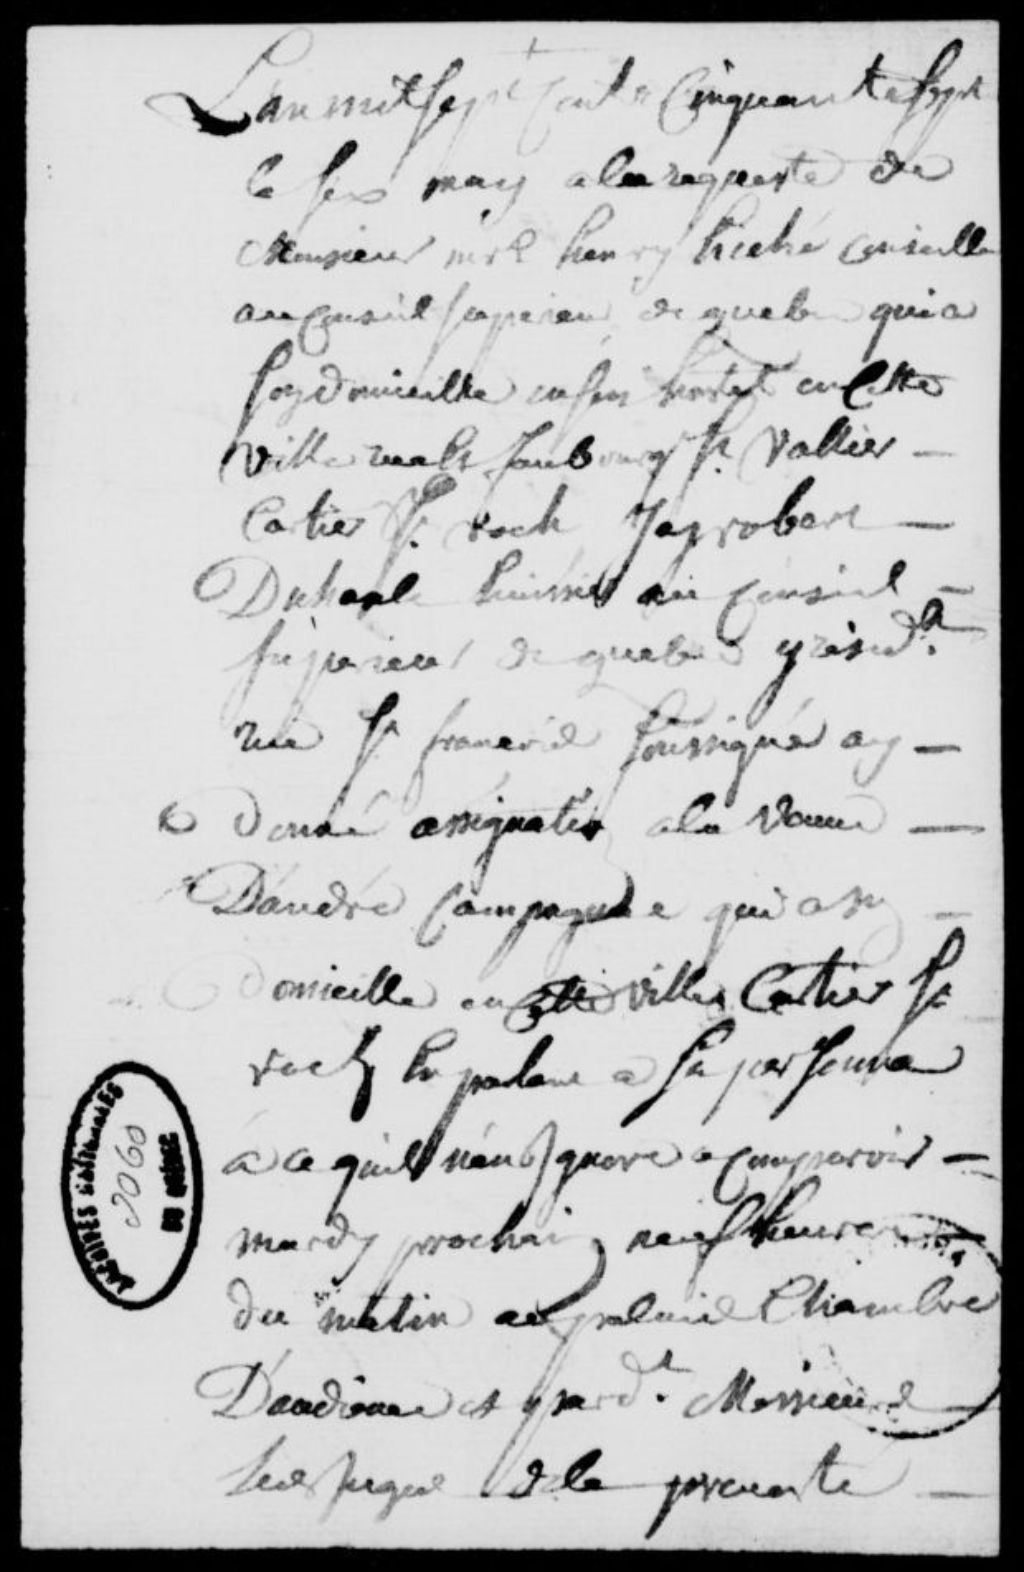 L'an mil sept cent Cinquante sept
le six may a la requeste de
Monsieur mre henry hiché conseille
au Conseil superieur de quebec qui a
son domicille en son hostel en cette
ville ruë et faubourg St. Vallier —
Cartier St. roch Jay robert —
Duhaal huissier au Conseil —
superieur de quebec y resid.t
ruë St francois soussigné ay —
donné assignation a la veuve —
D'andré Campagne qui a sy —
domicille en cette ville Cartier St
roch En parlant a sa personne
á ce quil n'en Ignore a Comparoir —
mardy prochain neuf heure
du matin au palaiis Chambre
D'audiance et pard.t Messieurs
les Juges de la prevosté —
ARCHIVES NATIONALES
2060
DU QUÉBEC